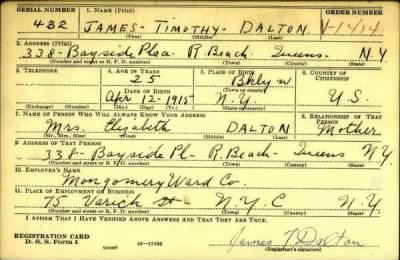 SERIAL NUMBER 1. NAME (Print) ORDER NUMBER
432 JAMES - TIMOTHY - DALTON V-1414
(First) (Middle) (Last)
2. ADDRESS (Print)
338- Bayside Plaa. R. Beach. Queens. N.Y
(Number and street or R. F. D. number) (Town) (County) (State)
3. TELEPHONE 4. AGE IN YEARS 5. PLACE OF BIRTH 6. COUNTRY OF CITIZENSHIP
25 Bklyn
DATE OF BIRTH (Town or county)
Apr 12-1915 N.Y. U.S.
(Exchange) (Number) (Mo.) (Day) (Yr.) (State or country)
7. NAME OF PERSON WHO WILL ALWAYS KNOW YOUR ADDRESS 8. RELATIONSHIP OF THAT PERSON
Mrs. Elizabeth DALTON Mother
(Mr., Mrs., Miss) (First) (Middle) (Last)
9. ADDRESS OF THAT PERSON
338- Bayside Pl- R. Beach- Queens NY
(Number and street or R. F. D. number) (Town) (County) (State)
10. EMPLOYER'S NAME
Montgomery Ward Co.
11. PLACE OF EMPLOYMENT OR BUSINESS
75 Varick St N.Y.C N.Y.
(Number and street or R. F. D. number) (Town) (County) (State)
I AFFIRM THAT I HAVE VERIFIED ABOVE ANSWERS AND THAT THEY ARE TRUE.
REGISTRATION CARD
D. S. S. Form 1 (over) 16-17105 James T Dalton
(Registrant's signature)